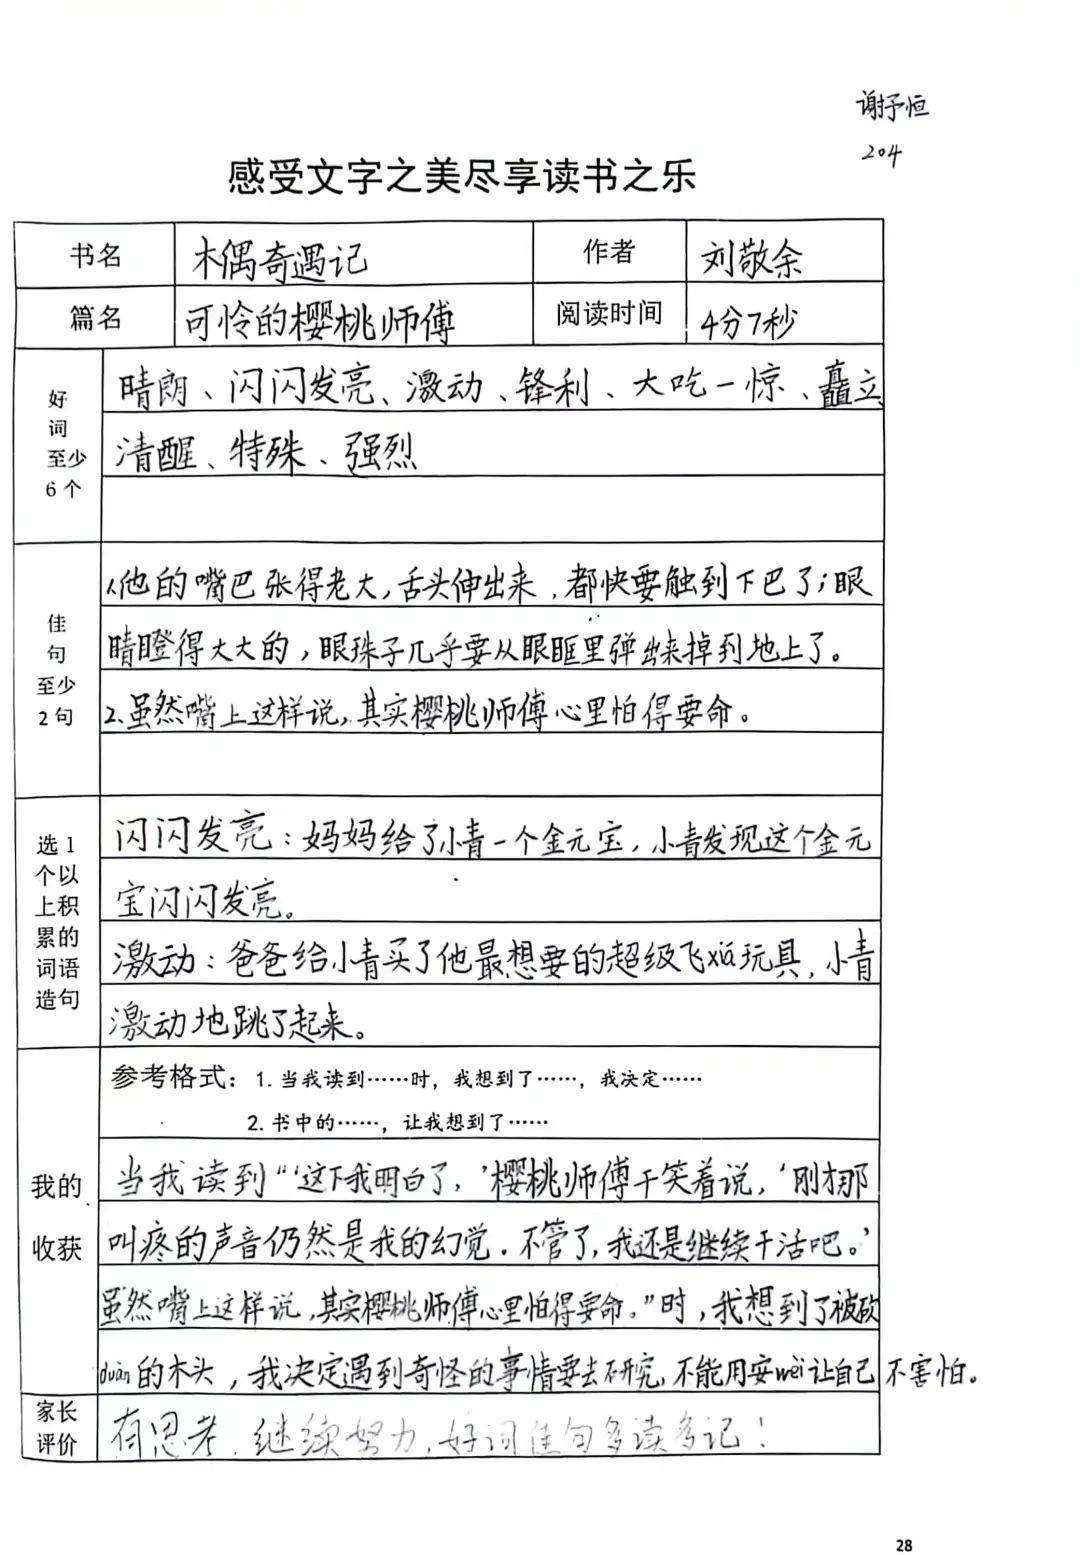 谢抒恒
204
感受文字之美尽享读书之乐
书名 木偶奇遇记 作者 刘敬余
篇名 可怜的樱桃师傅 阅读时间 4分7秒
好词至少6个
晴朗、闪闪发亮、激动、锋利、大吃一惊、矗立
清醒、特殊、强烈
佳句至少2句
1.他的嘴巴张得老大,舌头伸出来,都快要触到下巴了;眼
睛瞪得大大的,眼珠子几乎要从眼眶里弹出来掉到地上了。
2.虽然嘴上这样说,其实樱桃师傅心里怕得要命。
选1个以上积累的词语造句
闪闪发亮:妈妈给了小青一个金元宝,小青发现这个金元
宝闪闪发亮。
激动:爸爸给小青买了他最想要的超级飞xiá玩具,小青
激动地跳了起来。
我的收获
参考格式:1.当我读到……时,我想到了……,我决定……
2.书中的……,让我想到了……
当我读到“‘这下我明白了,’樱桃师傅干笑着说,‘刚才那
叫疼的声音仍然是我的幻觉.不管了,我还是继续干活吧。’
虽然嘴上这样说,其实樱桃师傅心里怕得要命。”时,我想到了被砍
duàn的木头,我决定遇到奇怪的事情要去研究,不能用安wèi让自己不害怕。
家长评价
有思考,继续努力,好词佳句多读多记!
28